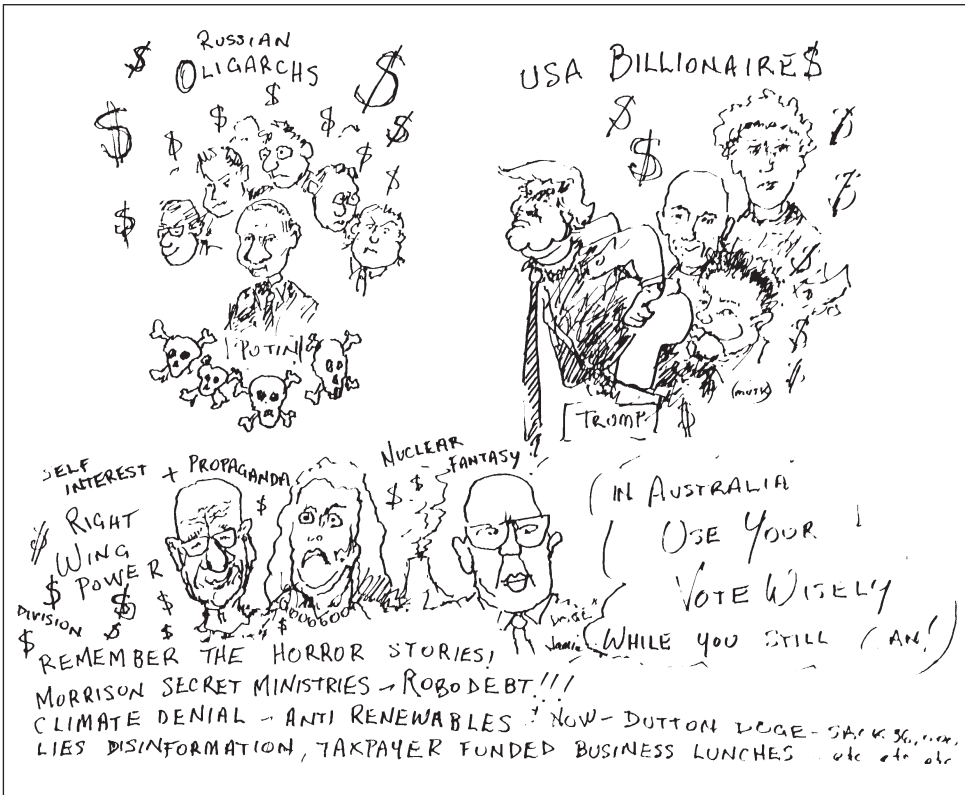 RUSSIAN
OLIGARCHS
USA BILLIONAIRE$
PUTIN
TROMP
(MUSK)
SELF
INTEREST + PROPAGANDA
NUCLEAR
FANTASY
RIGHT
WING
POWER
DIVISION
IN AUSTRALIA
USE YOUR
VOTE WISELY
WHILE YOU STILL CAN!)
Jamie
REMEMBER THE HORROR STORIES!
MORRISON SECRET MINISTRIES - ROBODEBT!!!
CLIMATE DENIAL - ANTI RENEWABLES ! NOW - DUTTON DOGE - SACK
LIES DISINFORMATION, TAXPAYER FUNDED BUSINESS LUNCHES etc etc etc